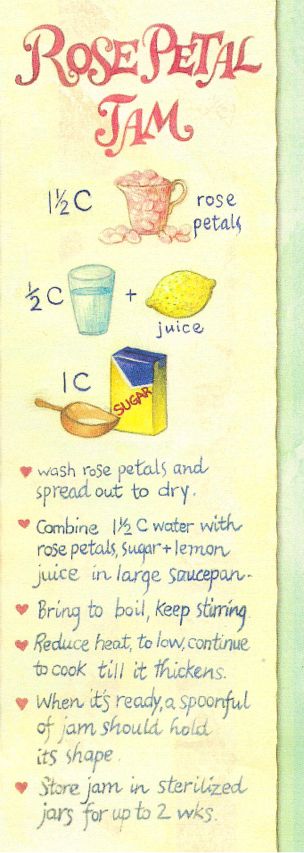 ROSE PETAL
JAM
1½ C
rose
petals
½ C
+
juice
1 C
SUGAR
wash rose petals and
spread out to dry.
Combine 1½ C water with
rose petals, sugar + lemon
juice in large saucepan.
Bring to boil, keep stirring
Reduce heat, to low, continue
to cook till it thickens.
When it's ready, a spoonful
of jam should hold
its shape.
Store jam in sterilized
jars for up to 2 wks.